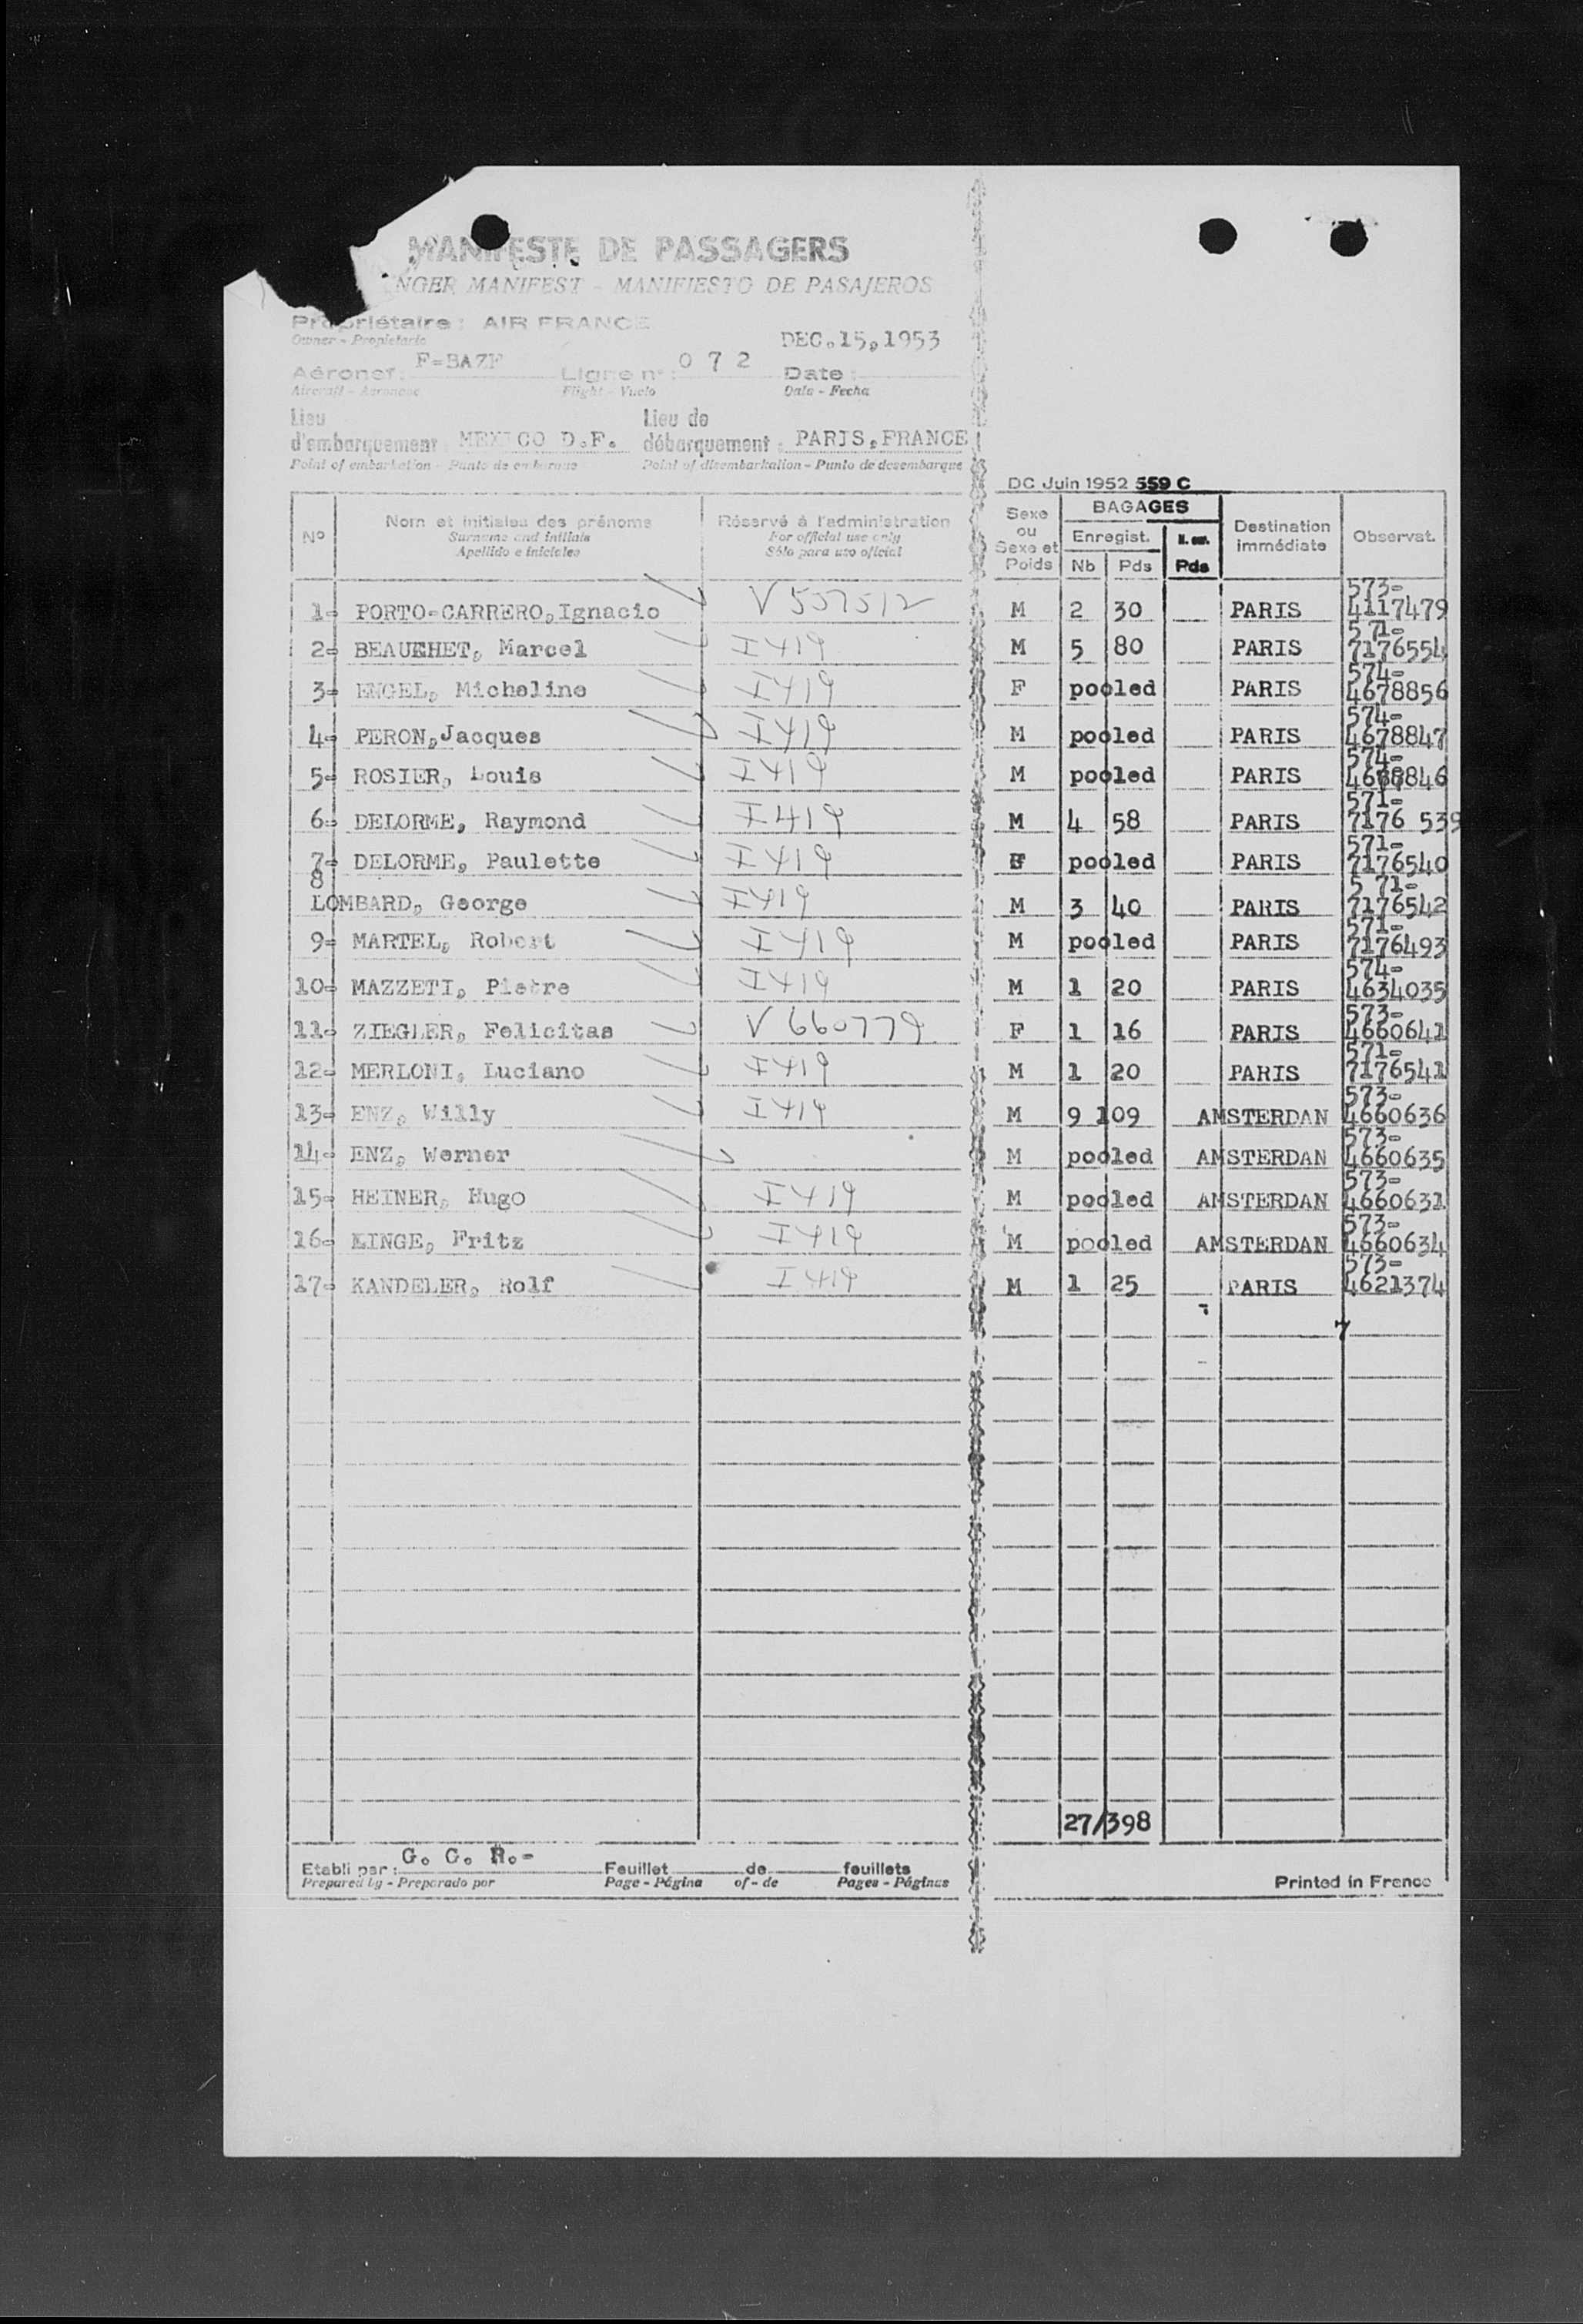 MANIFESTE DE PASSAGERS
NGER MANIFEST - MANIFIESTO DE PASAJEROS
Propriétaire : AIR FRANCE
Owner - Propietario
DEC.15,1953
Aéronef : F-BAZF Ligne n° : 0 7 2 Date :
Aircraft - Aeronave Flight - Vuelo Date - Fecha
Lieu Lieu de
d'embarquement : MEXICO D.F. débarquement : PARIS,FRANCE
Point of embarkation - Punto de embarque Point of disembarkation - Punto de desembarque
DC Juin 1952 559 C
N° Nom et initiales des prénoms Réservé à l'administration Sexe ou Sexe et Poids BAGAGES Enregist. Nb Pds Pds Destination immédiate Observat.
Surname and initials For official use only
Apellido e iniciales Sólo para uso oficial
1- PORTO-CARRERO,Ignacio V 557512 M 2 30 PARIS 573-4117479
2- BEAUEHET, Marcel I419 M 5 80 PARIS 571-7176554
3- ENGEL, Micheline I419 F pooled PARIS 574-4678856
4- PERON,Jacques I419 M pooled PARIS 574-4678847
5- ROSIER, Louis I419 M pooled PARIS 574-
6- DELORME, Raymond I419 M 4 58 PARIS 571-7176 539
7- DELORME, Paulette I419 F pooled PARIS 571-7176540
8 LOMBARD, George I419 M 3 40 PARIS 5 71-7176542
9- MARTEL, Robert I419 M pooled PARIS 571-7176493
10- MAZZETI, Pietre I419 M 1 20 PARIS 574-4634035
11- ZIEGLER, Felicitas V 660779 F 1 16 PARIS 573-4660641
12- MERLONI, Luciano I419 M 1 20 PARIS 571-7176541
13- ENZ, Willy I419 M 9 109 AMSTERDAN 573-4660636
14- ENZ, Werner M pooled AMSTERDAN 573-4660635
15- HEINER, Hugo I419 M pooled AMSTERDAN 573-4660631
16- LINGE, Fritz I419 M pooled AMSTERDAN 573-4660634
17- KANDELER, Rolf I419 M 1 25 PARIS 573-4621374
27/398
Etabli par : G. C. R.- Feuillet de feuillets
Prepared by - Preparado por Page - Página of - de Pages - Páginas
Printed in France